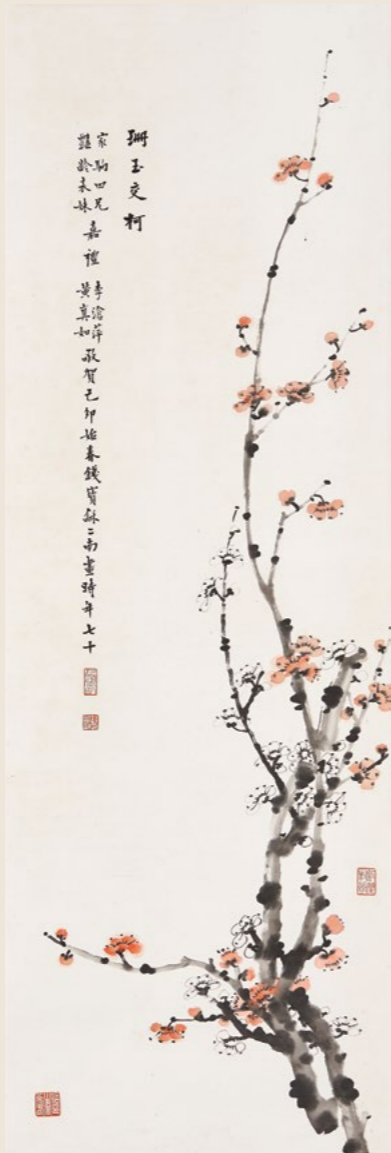 珊玉交柯
家駒四兄
齡表妹
嘉禮
李滄萍
黃真如
敬賀己卯始春錢賓龢二南畫時年七十